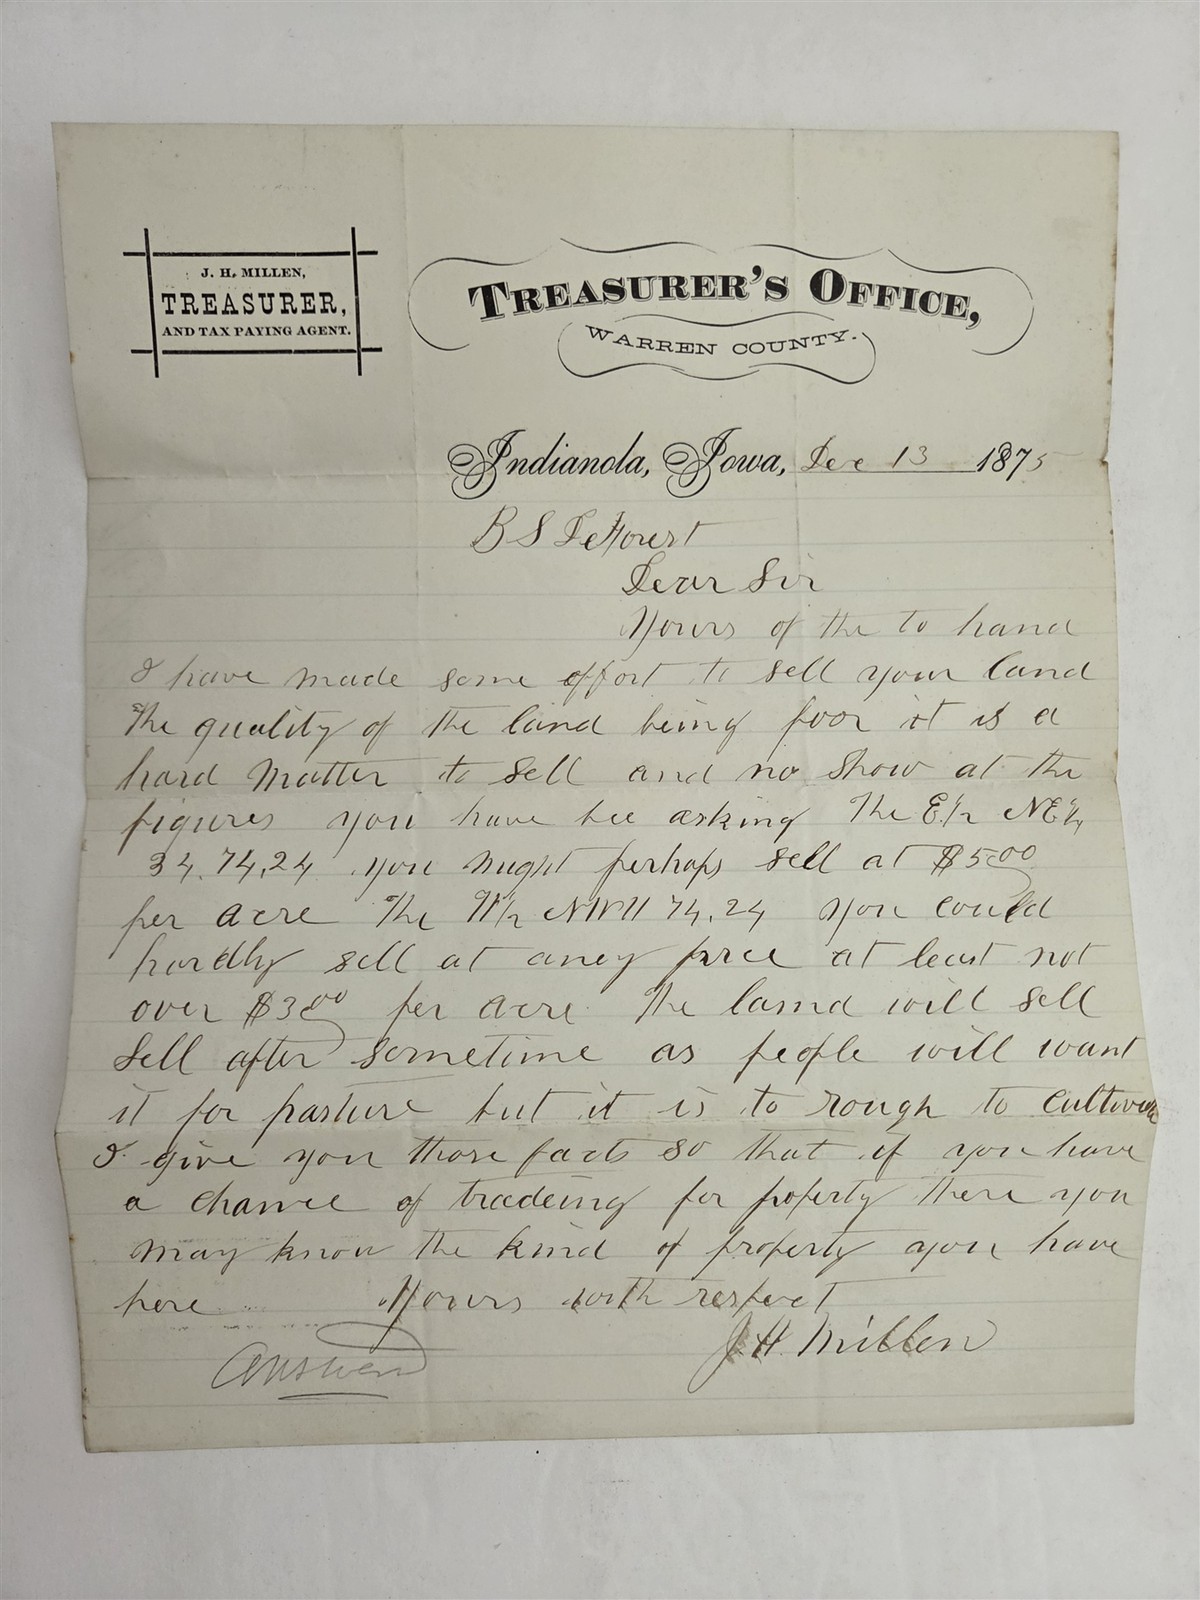 J. H. MILLEN,
TREASURER,
AND TAX PAYING AGENT.
TREASURER'S OFFICE,
WARREN COUNTY.
Indianola, Iowa, Dec 13 1875
B S DeForest
Dear Sir
Yours of the to hand
I have made some effort to sell your land
The quality of the land being poor it is a
hard matter to sell and no show at the
figures you have bee asking The E 1/2 NE 1/4
34, 74, 24 you might perhaps sell at $5.00
per acre The W 1/2 NW 11 74, 24 you could
hardly sell at aney price at least not
over $3.00 per acre The land will sell
sell after sometime as people will want
it for pasture but it is to rough to cultivate
I give you those facts so that if you have
a chance of tradeing for property there you
may know the kind of property you have
here Yours with respect
J. H. Millen
Answerd